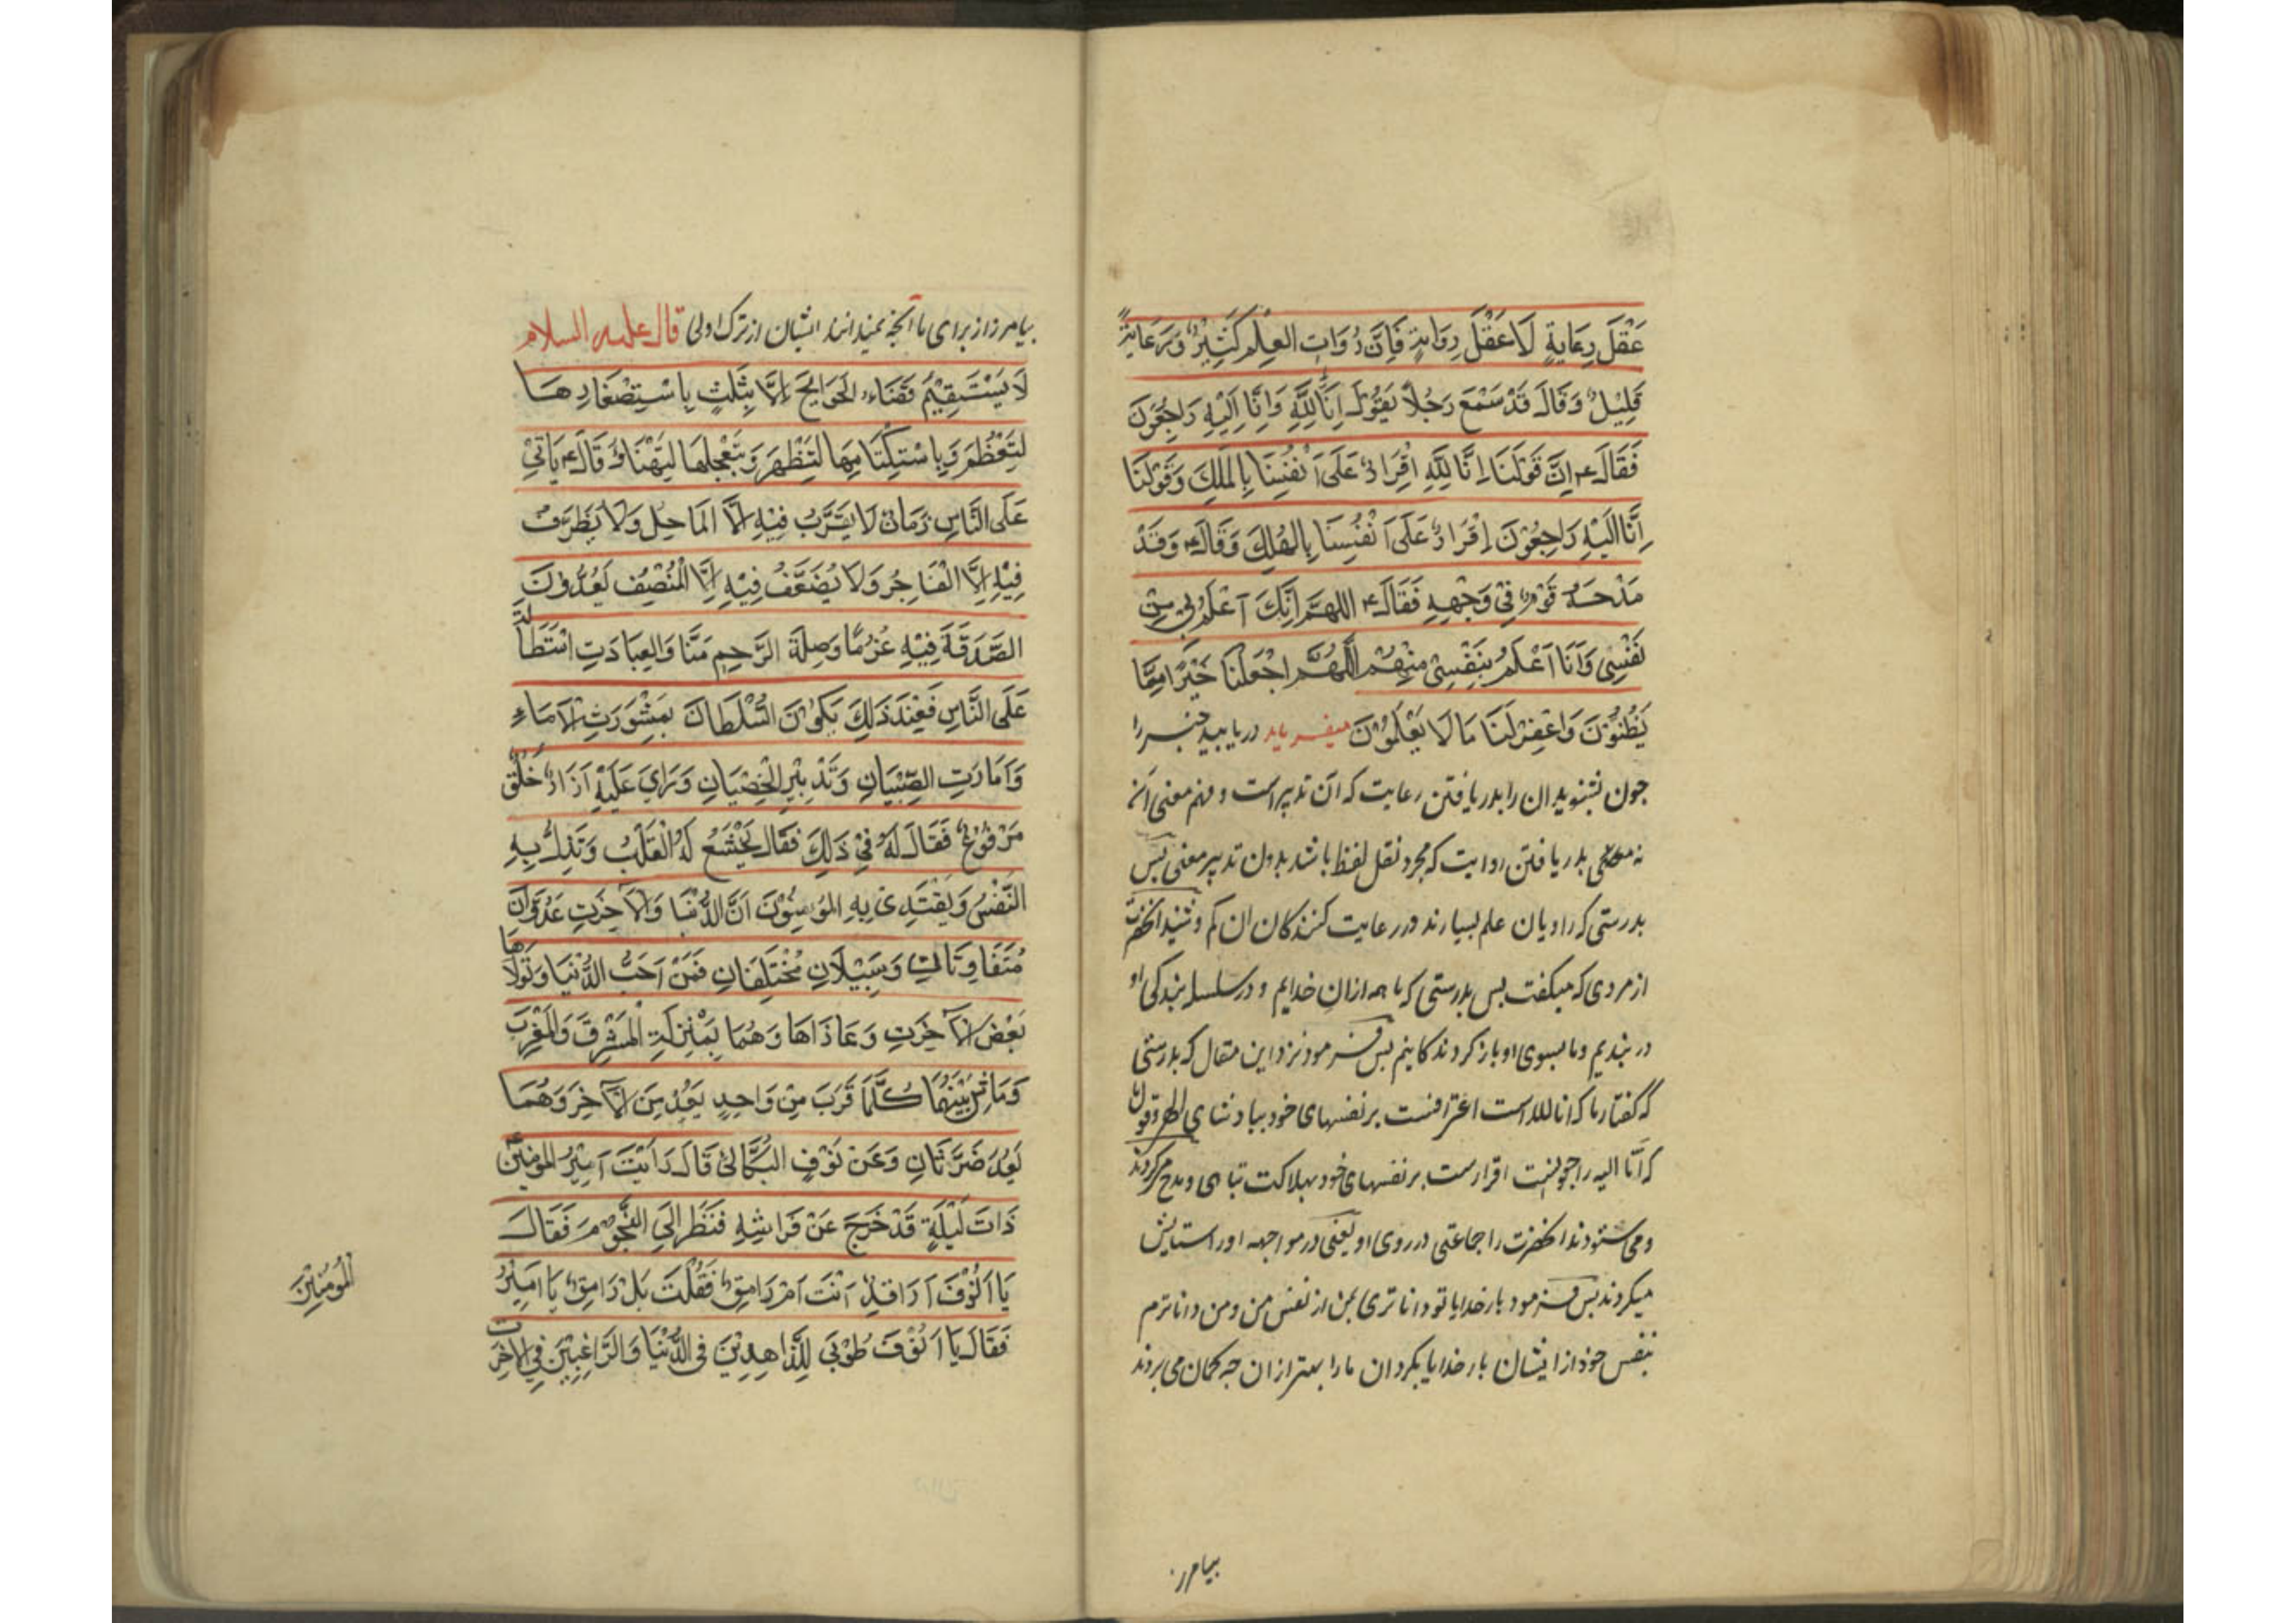 عَقْلَ رِعَايَةٍ لَا عَقْلَ رِوَايَةٍ فَاِنَّ رُوَاتِ العِلْمِ كَثِيْرٌ وَرَعَايَةً
قَلِيْلٌ وَقَالَ قَدْ سَمْعَ رَجُلاً يَقُوْلُ اِنَّا لِلَّهِ وَاِنَّا اِلَيْهِ رَاجِعُوْنَ
فَقَالَ ۴ اِنَّ قَوْلَنَا اِنَّا لِلَّهِ اِقْرَارٌ عَلَى اَنْفُسِنَا بِالمَلِكِ وَقَوْلَنَا
اِنَّا اِلَيْهِ رَاجِعُوْنَ اِقْرَارٌ عَلَى اَنْفُسِنَا بِالهُلِكَ وَقَالَ ۴ وَقَدْ
مَدْحَهُ قَوْمٌ فِيْ وَجْهِهِ فَقَالَ ۴ اللهُمَّ اِنَّكَ اَعْلَمُ بِيْ مِنْ
نَفْسِيْ وَاَنَا اَعْلَمُ بِنَفْسِيْ مِنْهُمْ اَللّٰهُمَّ اجْعَلْنَا خَيْرًا مِمَّا
يَظُنُّوْنَ وَاغْفِرْ لَنَا مَا لَا يَعْلَمُوْنَ ميفرمايد دريابيد خبر را
جون بشنويد ان را بدريافتن رعايت كه آن تدبيراست و فهم معنى آنه
نه بدريافتن روايت كه مجرد نقل لفظ باشد بدون تدبير معنى بس
بدرستى كه راويان علم بسيارند ورعايت كنندكان ان كم وشنيد انحضرت
از مردى كه ميكفت بس بدرستى كه ما همه ازان خدايم و در سلسله بندكى او
در بنديم وما بسوى او باز كردندكانيم بس فرمود نزد اين مقال كه بدرستى
كه كفتار ما كه انا لله است اعترافست بر نفسهاى خود ببادشاى الهى وقول ما
كه انّا اليه راجعونست اقرارست بر نفسهاى خود بهلاكت تباهى ومدح مى كردند
ومى ستودند انحضرت را جماعتى در روى او يعنى در مواجهه او را ستايش
ميكردند بس فرمود بار خدايا تو داناترى بمن از نفس من ومن داناترم
بنفس خود از ايشان بار خدايا بكردان ما را بهتر ازان جه كمان مى بردند
بيامرز
بيامرز از براى ما آنجه نميدانند ايشان از ترك اولى قال عليه السلام
لَا يَسْتَقِيْمُ قَضَاءُ الحَوَايِجَ اِلَّا بِثَلٰثٍ بِاسْتِصْغَارِهَا
لِتَعْظُمَ وَبِاسْتِكْتَامِهَا لِتَظْهَرَ وَبِتَعْجِلِهَا لِتَهْنَاؤُ قَالَ ۴ يَاتِيْ
عَلَى النَّاسِ زَمَانٌ لَا يَقَرَّبُ فِيْهِ اِلَّا المَاحِلُ وَلَا يُظَرَّفُ
فِيْهِ اِلَّا الْفَاجُرُ وَلَا يُضَعَّفُ فِيْهِ اِلَّا الْمُنْصِفُ يَعُدُّوْنَ
الصَّدَقَةَ فِيْهِ غُرْمًا وَصِلَةَ الرَّحِمِ مَنًّا وَالعِبَادَتِ اسْتَطَالَة
عَلَى النَّاسِ فَعِنْدَ ذٰلِكَ يَكُوْنَ السُّلْطَانَ بِمَشْوَرَتِ الاَمَاءِ
وَاَمَارَتِ الصِّبْيَانِ وَتَدْبِيْرِ الْخِصْيَانِ وَرَاىَ عَلَيْهِ اَزَارٌ خَلَقٌ
مَرْقُوْعٌ فَقَالَ لَهُ فِيْ ذٰلِكَ فَقَالَ يَخْشَعُ لَهُ الْقَلْبُ وَتَذِلُّ بِهِ
النَّفْسُ وَيَقْتَدِىْ بِهِ المُوْمِنُوْنَ اَنَّ الدُّنْيَا وَالاٰخِرَتِ عَدُوَّانِ
مُتَفَاوِتَانِ وَسَبِيْلَانِ مُخْتَلِفَانِ فَمَنْ اَحَبَّ الدُّنْيَا وَتَوَلَّاهَا
بَغْضِ الاٰخِرَتِ وَعَادَاهَا وَهُمَا بِمَنْزِلَةِ الْمَشْرِقَ وَالْمَغْرِبَ
وَمَاشٍ بَيْنَهُمَا كُلَّمَا قَرُبَ مِنْ وَاحِدٍ بَعُدَ مِنَ الْاٰخِرَ وَهُمَا
بَعْدُ ضَرَّتَانِ وَعَنْ نَوْفٍ البَكَّالِىْ قَالَ رَاَيْتَ اَمِيْرُ المُوْمِنِيْنَ ۴
ذَاتَ لَيْلَةٍ قَدْ خَرَجَ عَنْ فَرَاشِهِ فَنَظَرَ اِلَى النُّجُوْمِ فَقَالَ
يَا اَنُوْفَ اَرَاقِدٌ اَنْتَ اَمْ رَامِقٌ فَقُلْتَ بَلْ رَامِقٌ يَا اَمِيْرُ
الْمُوْمِنِيْنَ
فَقَالَ يَا اَنُوْفَ طُوْبٰى لِلزَّاهِدِيْنَ فِى الدُّنْيَا وَالرَّاغِبِيْنَ فِى الاٰخِرَت